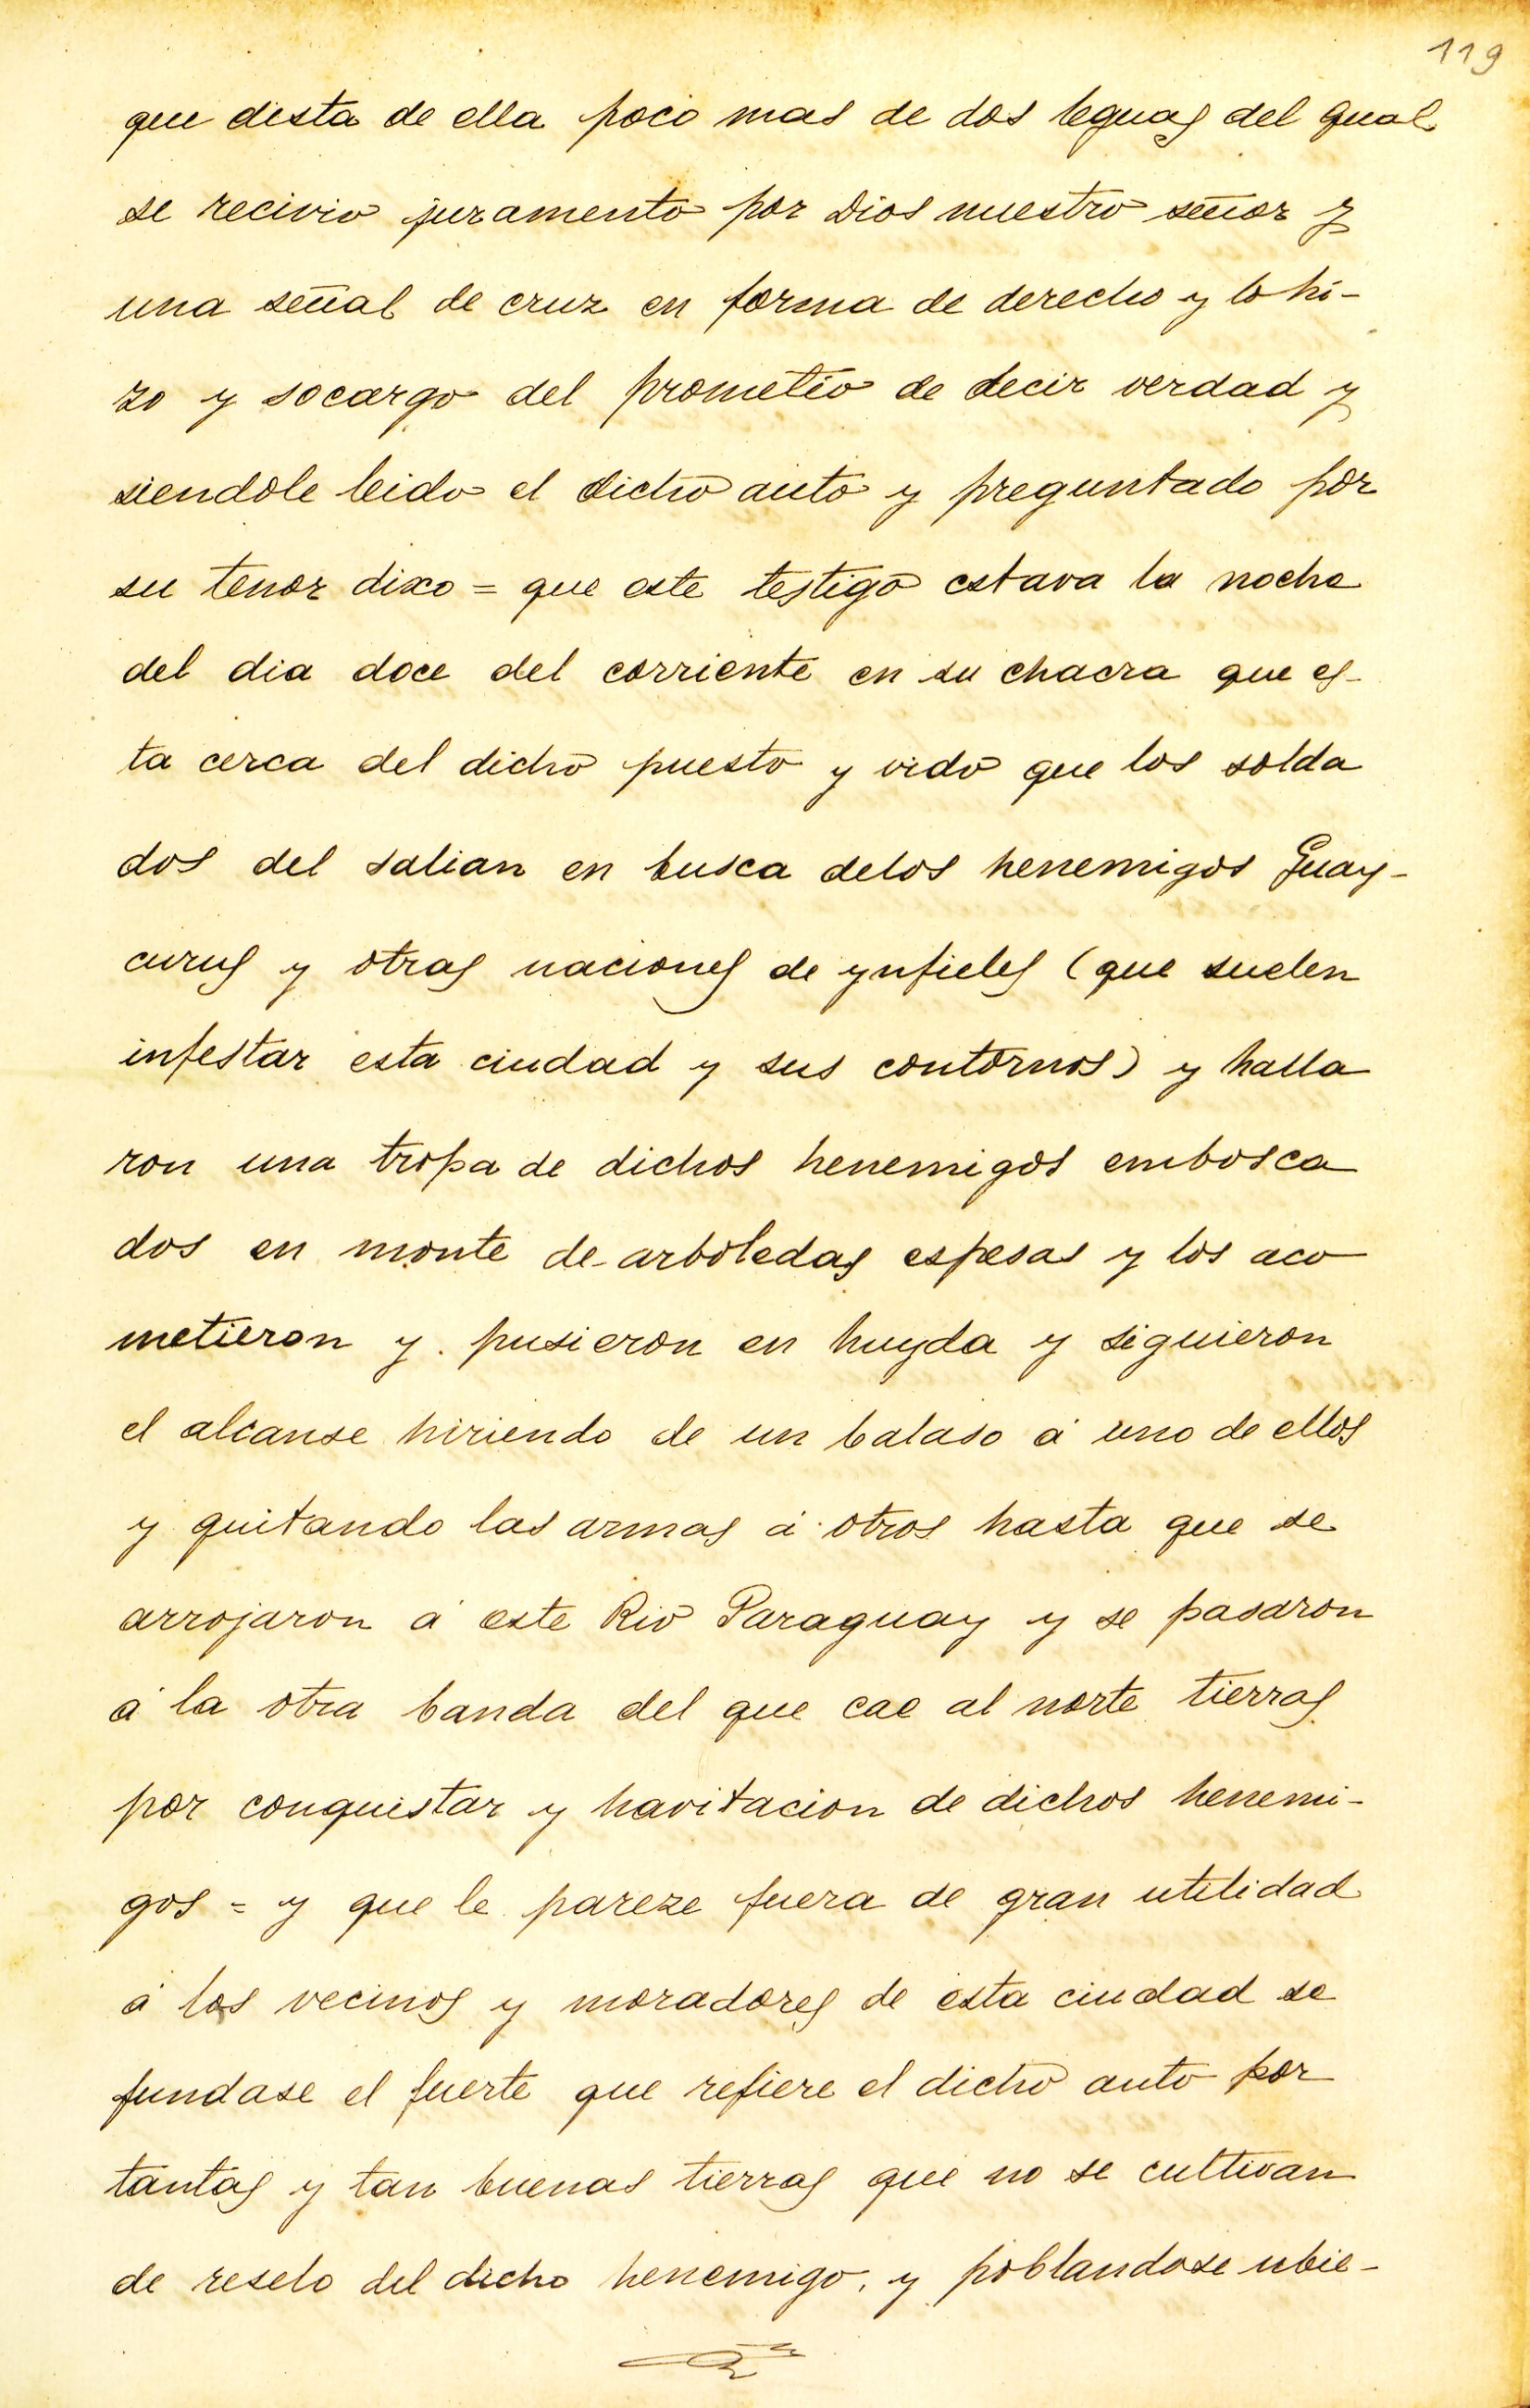 119
que dista de ella poco mas de dos leguas del qual
se recivio juramento por Dios nuestro señor y
una señal de cruz en forma de derecho y lo hi-
zo y socargo del prometio de decir verdad y
siendole leido el dicho auto y preguntado por
su tenor dixo = que este testigo estava la noche
del dia doce del corriente en su chacra que es-
ta cerca del dicho puesto y vido que los solda
dos del salian en busca delos henemigos Guay-
curus y otras naciones de ynfieles (que suelen
infestar esta ciudad y sus contornos) y halla
ron una tropa de dichos henemigos embosca
dos en monte de arboledas espesas y los aco
metieron y pusieron en huyda y siguieron
el alcanse hiriendo de un balaso á uno de ellos
y quitando las armas á otros hasta que se
arrojaron á este Rio Paraguay y se pasaron
á la otra banda del que cae al norte tierras
por conquistar y havitacion de dichos henemi-
gos = y que le pareze fuera de gran utilidad
á los vecinos y moradores de esta ciudad se
fundase el fuerte que refiere el dicho auto por
tantas y tan buenas tierras que no se cultivan
de reselo del dicho henemigo, y poblandose ubie-